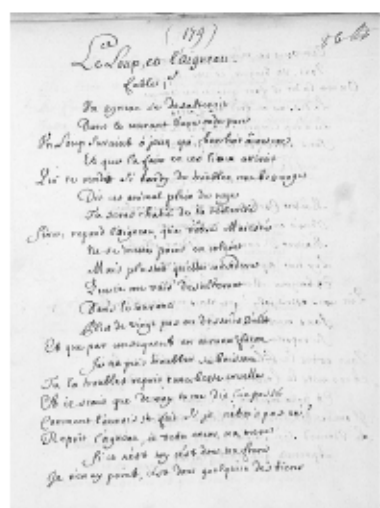 (179)
Le Loup, et l'aigneau.
Fable
Un agneau se desalteroit
Dans le courant d'une onde pure
Un Loup survient à jeun, qui cherchoit
Et que la faim en ces lieux attiroit
Qui te rend si hardy de troubler mon breuvage
Dit cet animal plein de rage
Tu seras chatié de ta temerité
Sire, repond l'aigneau, que votre Maiesté
Ne se mette point en colere
Mais plustost qu'elle considere
Que je me vais desalterant
Dans le courant
Plus de vingt pas au dessous d'elle
Et que par consequent en aucune facon
Je ne puis troubler sa boisson
Tu la troubles reprit cette beste cruelle
Et ie scais que de moy tu me dis l'an passé
Comment l'aurois je fait si je n'etois pas né?
Reprit l'agneau, je tette encor ma mere
Si ce n'est toy c'est donc ton frere
Je n'en ay point, C'est donc quelqu'un des tiens